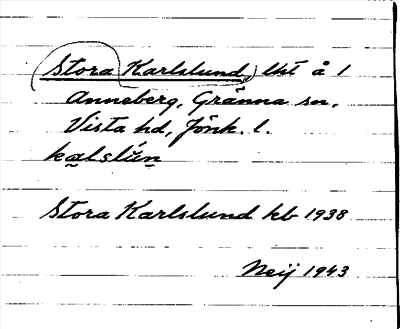 (Stora Karlslund), lht å 1
Anneberg, Gränna sn,
Vista hd, Jönk. l.
kalslún
Stora Karlslund kb 1938
Neij 1943